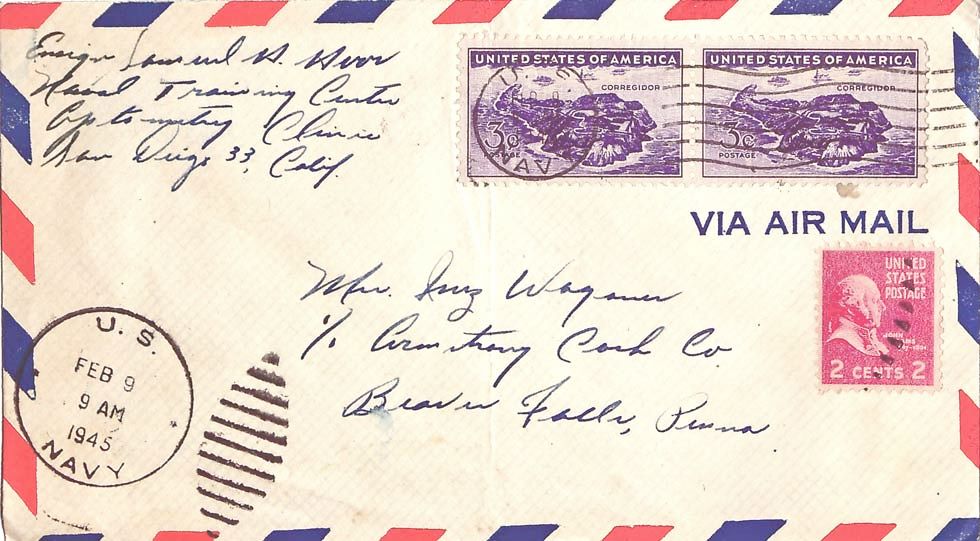 Ensign Samuel H. Hoor
Naval Training Center
Optometry Clinic
San Diego 33, Calif.
UNITED STATES OF AMERICA
CORREGIDOR
3c
POSTAGE
UNITED STATES OF AMERICA
CORREGIDOR
3c
POSTAGE
U.S.
NAVY
VIA AIR MAIL
UNITED
STATES
POSTAGE
JOHN
2 CENTS 2
Mrs. Inez Wagoner
% Armstrong Cork Co
Beaver Falls, Penna
U. S.
FEB 9
9 AM
1945
NAVY